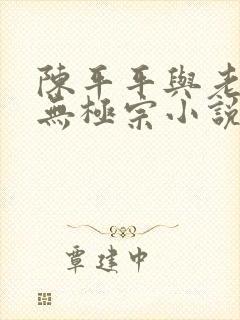 陳平平與老
無極宗小說
覃建中